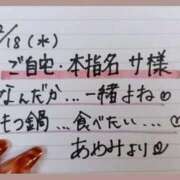 2/18(水)
ご自宅・本指名 サ様
なんだか...一緒よね♡
もつ鍋...食べたい...♡
あめみより